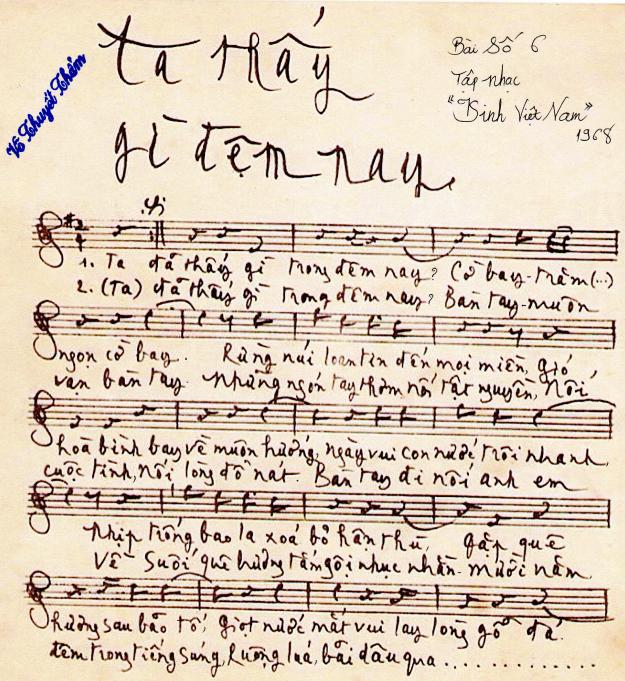 Võ Thuyết Thảm
Ta thấy
gì đêm nay
Bài Số 6
Tập nhạc
"Kinh Việt Nam"
1968
1. Ta đã thấy gì trong đêm nay? Cờ bay-trăm (..)
2. (Ta) đã thấy gì trong đêm nay? Bàn tay-muôn
ngọn cờ bay. Rừng núi loan tin đến mọi miền, gió
vạn bàn tay. Những ngón tay thơm nối tật nguyền, Nối
hoà bình bay về muôn hướng, ngày vui con nước trôi nhanh,
cuộc tình, nối lòng đổ nát. Bàn tay đi nối anh em
Nhịp trống bao la xoá bỏ hận thù, gặp quê
Về suối quê hương tắm gội nhục nhằn. Mười năm
hương sau bão tố, giọt nước mắt vui lay lòng gỗ đá.
đêm trong tiếng súng, Ruộng lúa, bãi dâu qua . . . . . . . . . . . .